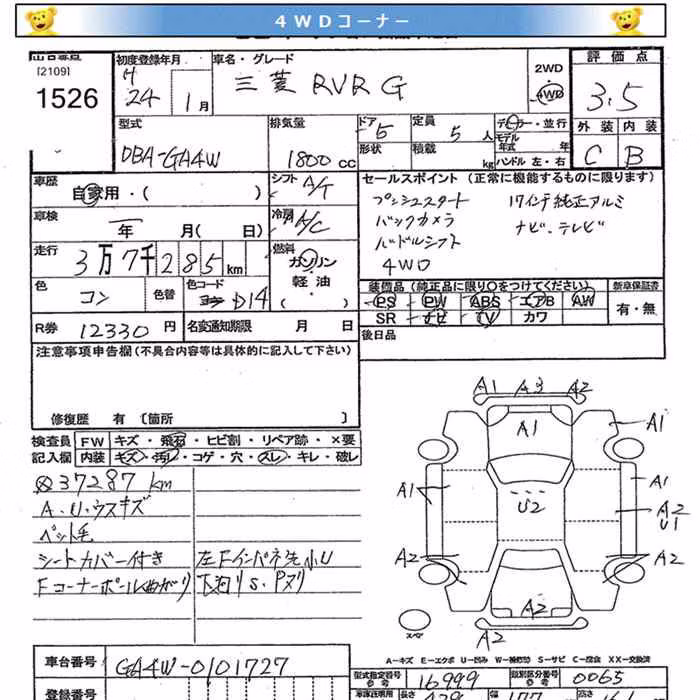 4WDコーナー
[2109]
1526
初度登録年月
H
24 1月
車名・グレード
三菱 RVR G
2WD
4WD
評価点
3.5
外装 内装
C B
型式
DBA-GA4W
排気量
1800cc
ドア 5
形状
定員 5人
積載 kg
ディーラー・並行
モデル年式 年
ハンドル 左・右
車歴
自家用・( )
シフト A/T
車検
年 月( 日)
冷房 A/C
走行
3万7千285km
燃料
ガソリン
軽油
( )
色
コン
色替
色コード
D14
R券 12330円
名変通知期限 月 日
セールスポイント(正常に機能するものに限ります)
プッシュスタート 17インチ純正アルミ
バックカメラ ナビ、テレビ
パドルシフト
4WD
装備品(純正品に限り〇をつけてください)
PS PW ABS エアB AW
SR ナビ TV カワ
新車保証書
有・無
後日品
注意事項申告欄(不具合内容等は具体的に記入して下さい)
修復歴 有 〔箇所 〕
検査員 FW キズ・飛石・ヒビ割・リペア跡・×要
記入欄 内装 キズ・汚レ・コゲ・穴・スレ・キレ・破レ
37287 km
A.U.ウスキズ
ペット毛
シートカバー付き
Fコーナーポール曲がり
左Fインパネ洗小U
下廻りS.Pヌリ
A1 A3 A2
A1
A1
A1
A1
U2
A2
U1
A2
A2
A2
A2
スペア
A-キズ E-エクボ U-凹み W-補修跡 S-サビ C-腐食 XX-交換済
車台番号
GA4W-0101727
登録番号
型式指定番号
参考
16999
類別区分番号
参考
0065
長さ
幅
高さ